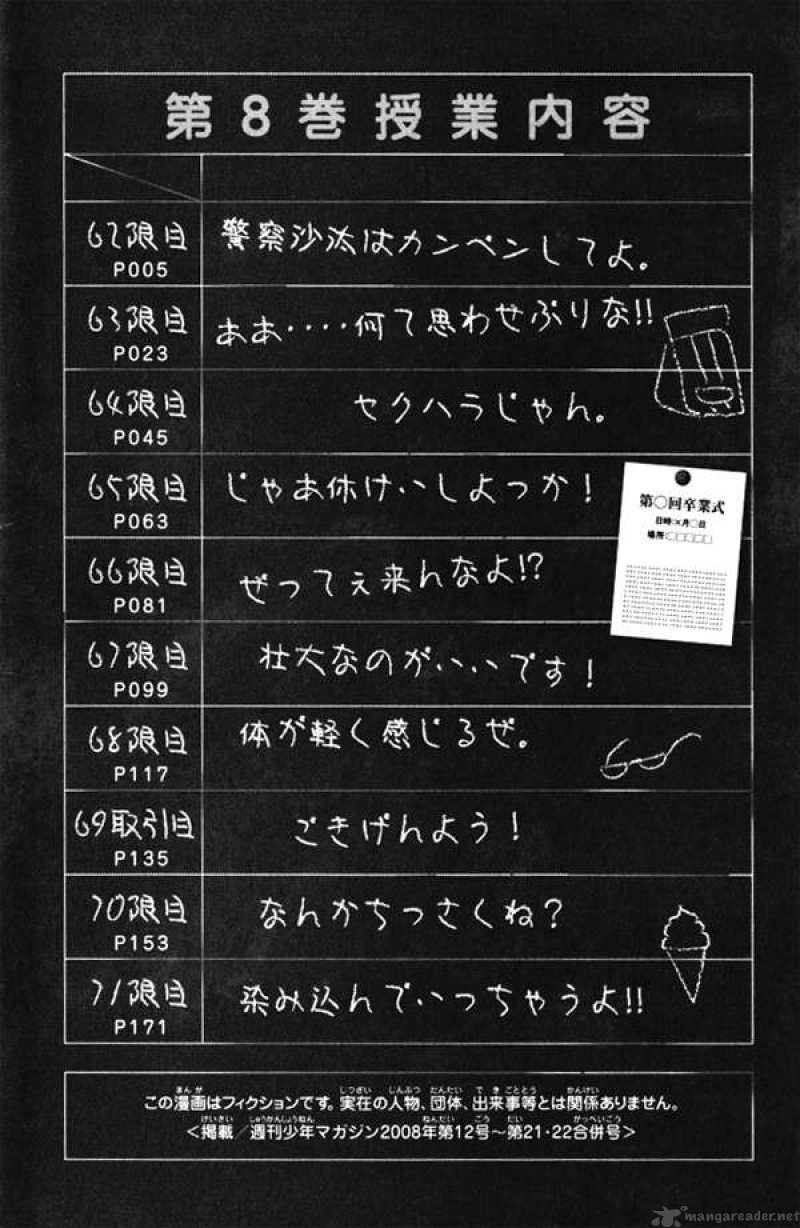 第8巻授業内容
62限目
P005
警察沙汰はカンベンしてよ。
63限目
P023
ああ‥‥何て思わせぶりな!!
64限目
P045
セクハラじゃん。
65限目
P063
じゃあ休けいしよっか！
第〇回卒業式
日時:×月〇日
場所:□□□□□
66限目
P081
ぜってぇ来んなよ!?
67限目
P099
壮大なのがいいです！
68限目
P117
体が軽く感じるぜ。
69取引目
P135
ごきげんよう！
70限目
P153
なんかちっさくね？
71限目
P171
染み込んでいっちゃうよ!!
この漫画はフィクションです。実在の人物、団体、出来事等とは関係ありません。
＜掲載／週刊少年マガジン2008年第12号〜第21・22合併号＞
mangareader.net